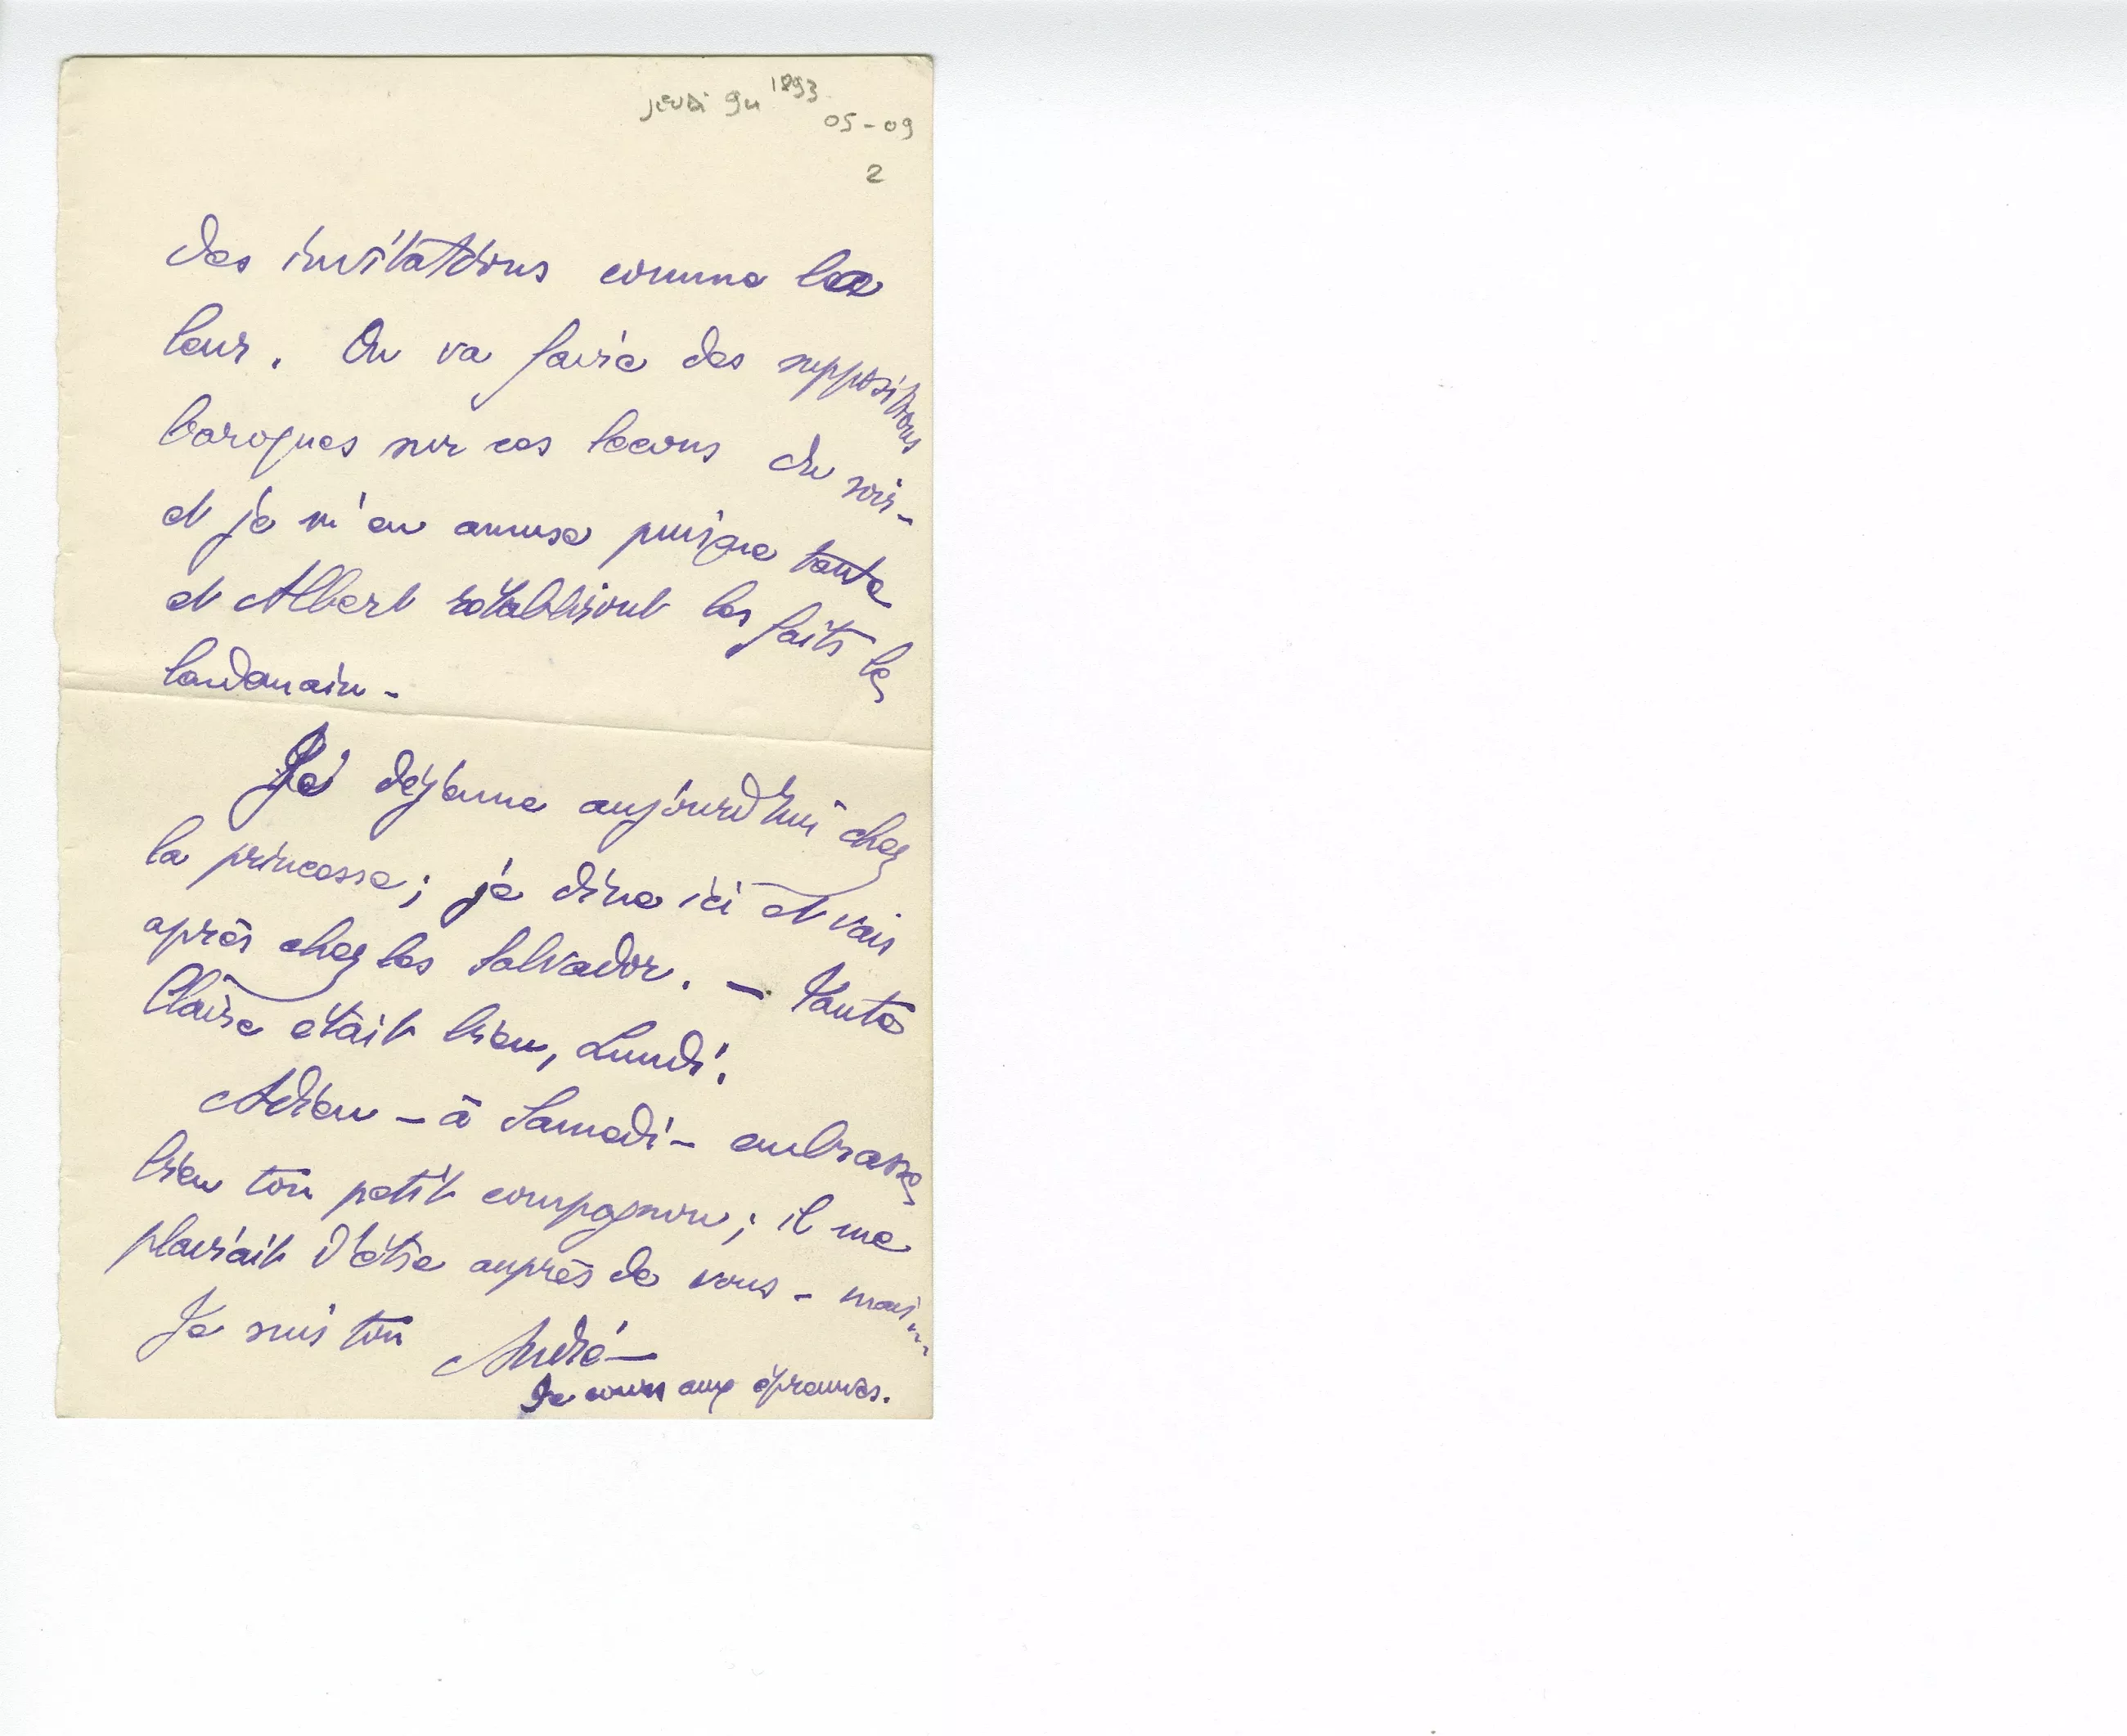 jeudi 9h 1893
05-09
2
des invitations comme la
leur. On va faire des suppositions
baroques sur ces leçons du soir -
et je m'en amuse puisque tante
et Albert rétabliront les faits le
lendemain -
Je déjeune aujourd'hui chez
la princesse; je dîne ici et vais
après chez les Salvador. - Tante
Claire était bien, Lundi.
Adieu - à Samedi - embrasse
bien ton petit compagnon; il me
plairait d'être auprès de vous - mais...
Je suis ton André -
Je cours aux épreuves.